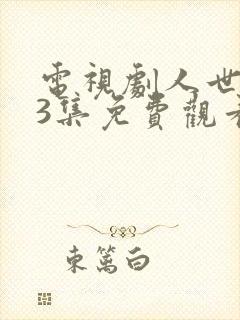 電視劇人世
3集免費觀看
東篱白